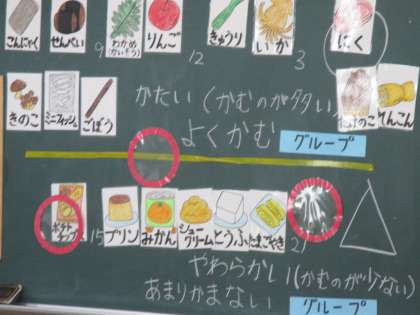 こんにゃく せんべい わかめ (かいそう) りんご きゅうり いか にく
9 12 3
きのこ ミニフィッシュ ごぼう たけのこ てんこん
かたい (かむのが多い)
よくかむ グループ
ポテトチップ 15 プリン みかん シュークリーム とうふ たまごやき 21
やわらかい (かむのが少ない)
あまりかまない グループ